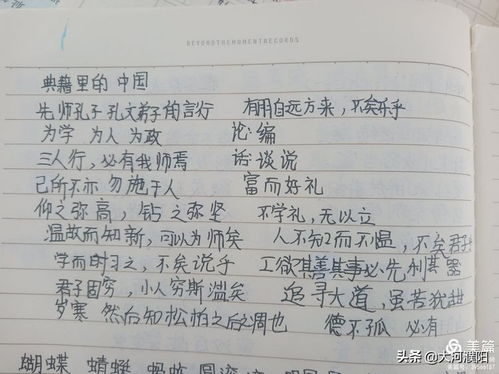 BEYONDTHEMOMENTRECORDS
典籍里的 中国
先师孔子 孔文弟子的言行 有朋自远方来，不矣乐乎
为学 为人 为政 论 编
三人行，必有我师焉 话 谈 说
己所不亦 勿施于人 富而好礼
仰之弥高，钻之弥坚 不学礼，无以立
温故而知新，可以为师矣 人不知而不愠，不矣君子
学而时习之，不矣说乎 工欲其善其事必先利其器
君子固穷，小人穷斯滥矣 追寻大道，虽苦犹甜
岁寒 然后知松怕之后凋也 德不孤 必有
蝴蝶 蜻蜓
美篇
头条 @大河濮阳